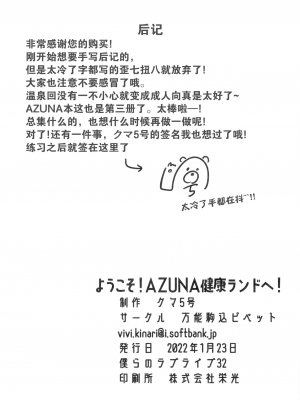 后记
非常感谢您的购买!
刚开始想要手写后记的,
但是太冷了字都写的歪七扭八就放弃了!
大家也注意不要感冒了哦。
温泉回没有一不小心就变成成人向真是太好了~
AZUNA本这也是第三册了。太棒啦—!
总集什么的，也想什么时候再做一做呢!
对了!还有一件事，クマ5号的签名我也想过了哦!
练习之后就签在这里了
太冷了手都在抖~!!
ようこそ!AZUNA健康ランドへ!
制作 クマ5号
サークル 万能駒込ピペット
vivi.kinari@i.softbank.jp
発行日 2022年1月23日
僕らのラブライブ32
印刷所 株式会社栄光